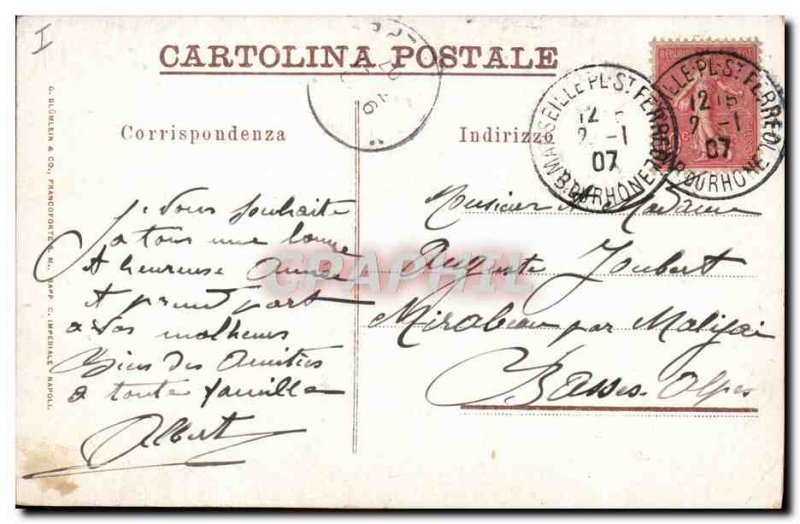 I
CARTOLINA POSTALE
Corrispondenza
Indirizzo
MARSEILLE PL. ST FERREOL
12
2 -1
07
B. DU RHONE
MARSEILLE PL. ST FERREOL
12 15
2 -1
07
B. DU RHONE
G. BLÜMLEIN & CO., FRANCOFORTE S. M., RAPP. C. IMPERIALE NAPOLI.
Je vous souhaite
a tous une bonne
& heureuse année
& prend part
a vos malheurs
Bien des Amitiés
a toute famille
Albert
Monsieur & Madame
Auguste Joubert
Mirabeau par Malijai
Basses-Alpes
CPAPHIL